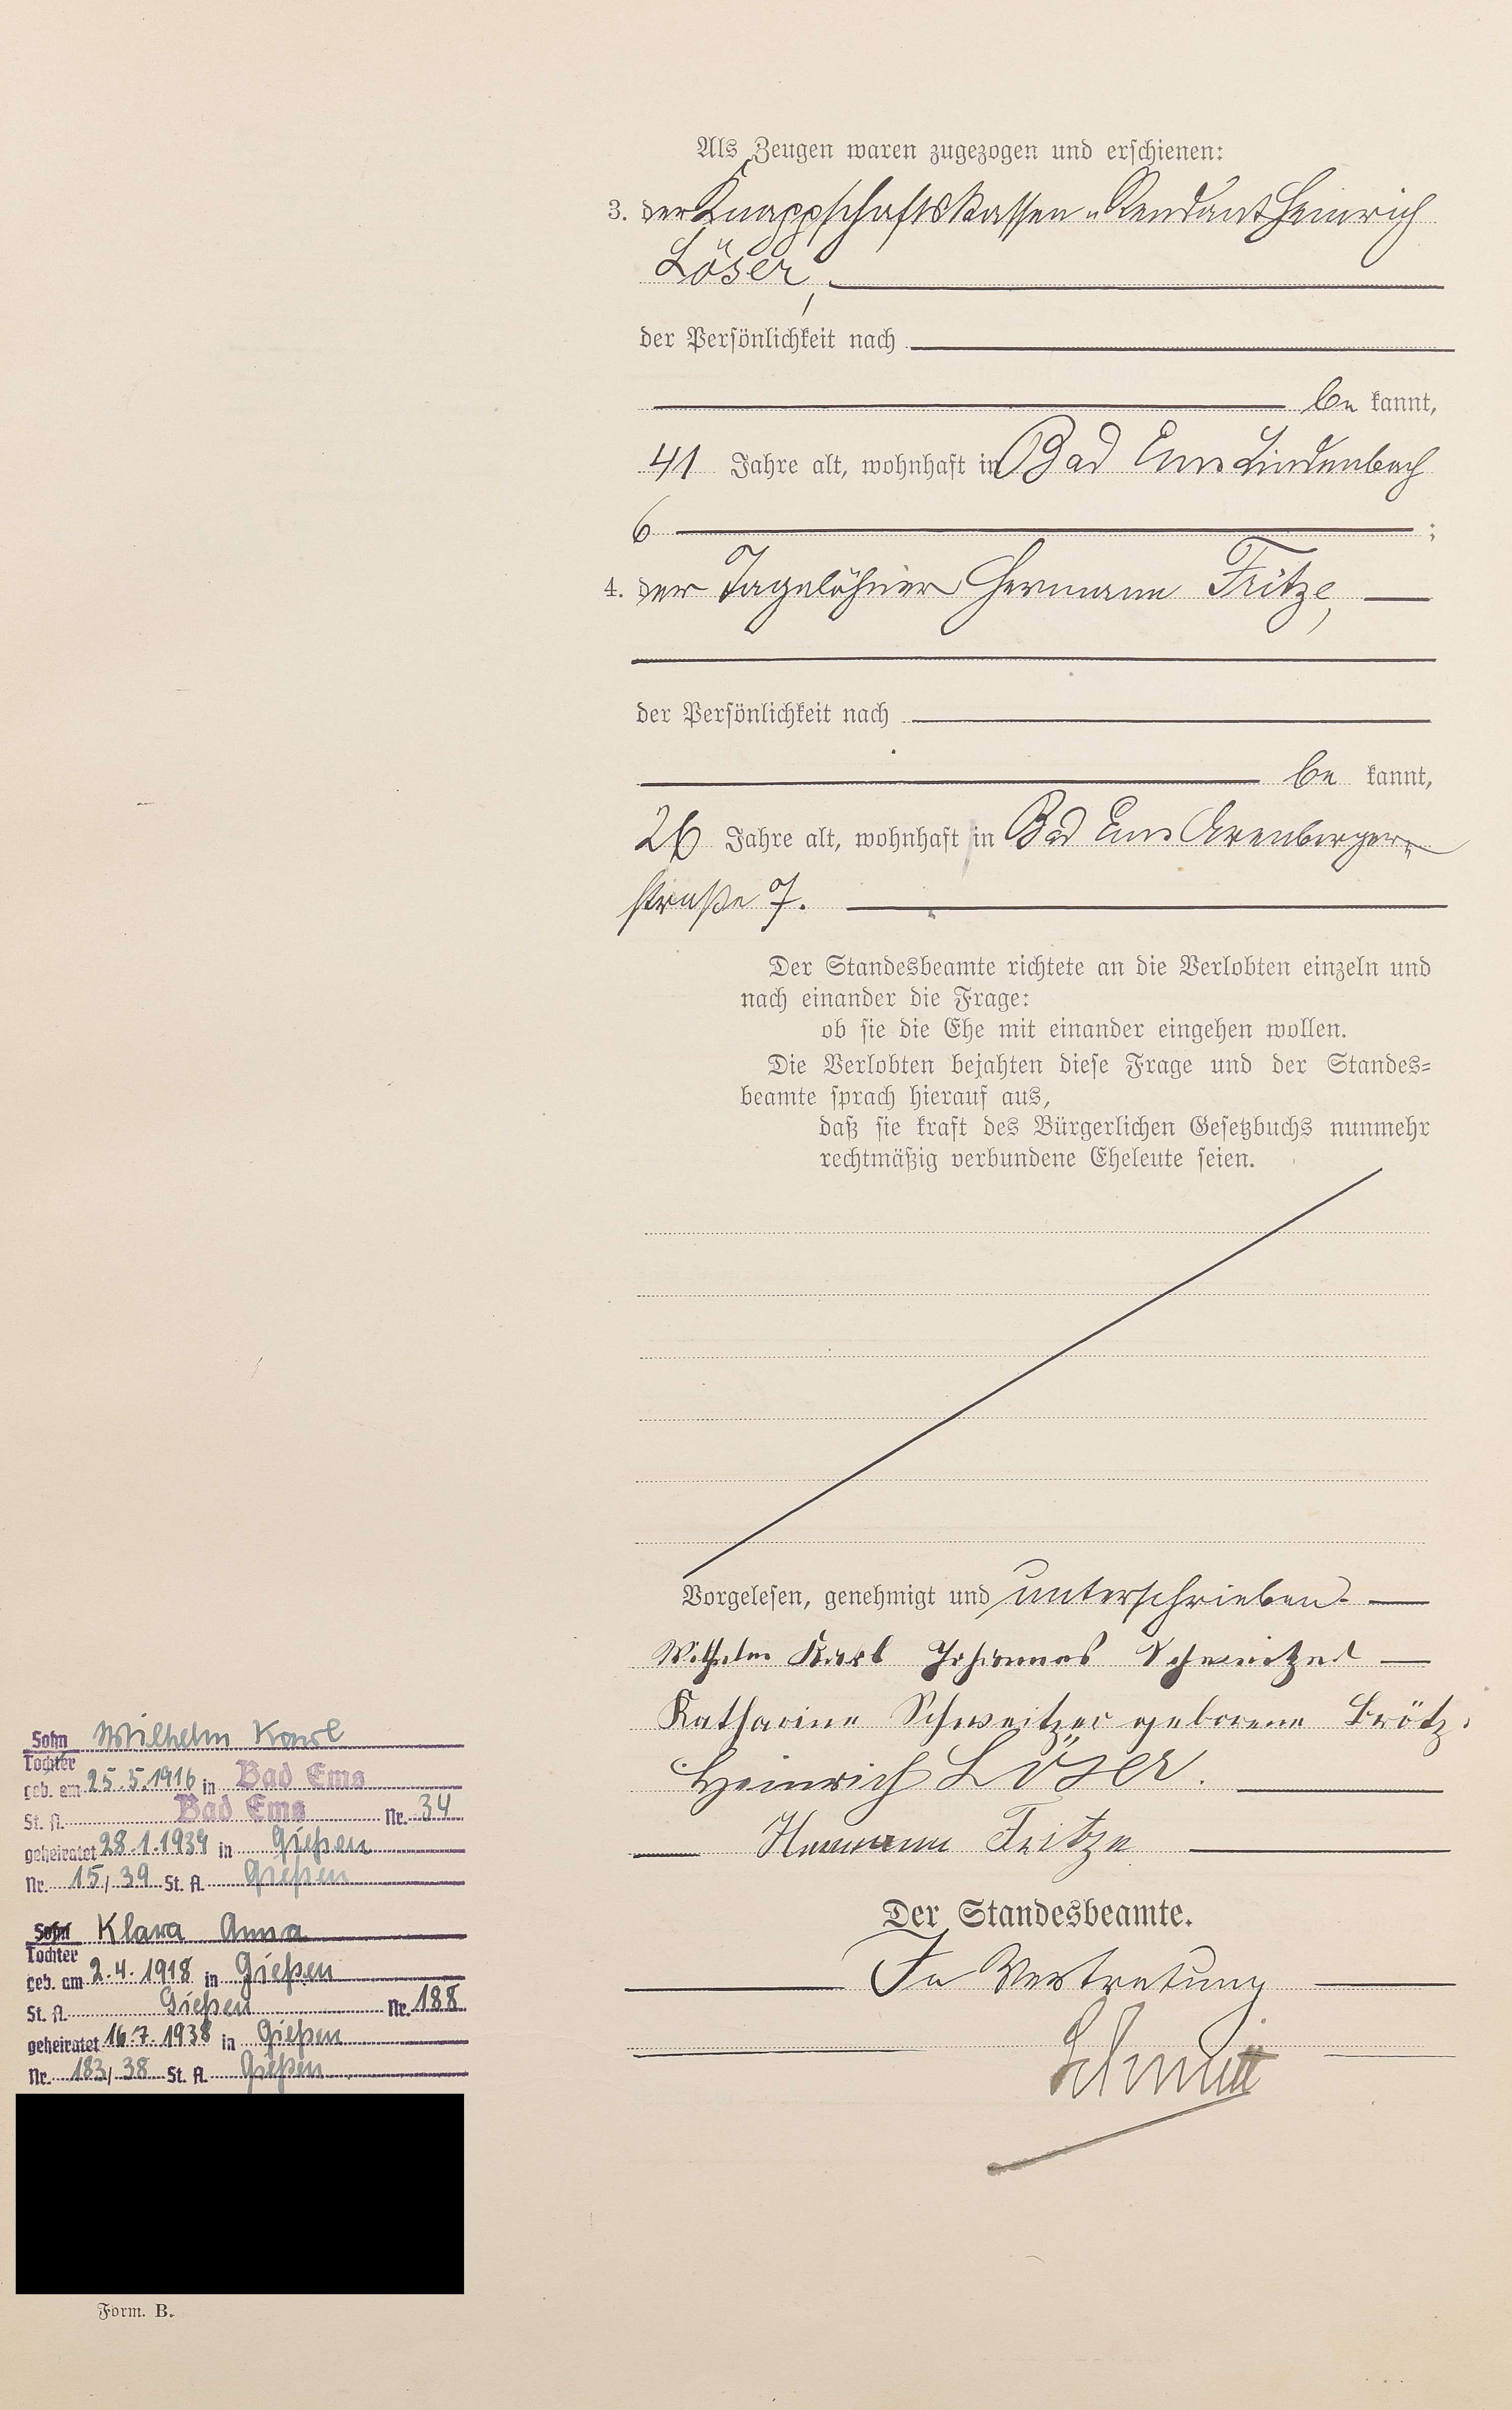 Als Zeugen waren zugezogen und erschienen:
3. der Knappschaftskassen-Rendant Heinrich
Löser,
der Persönlichkeit nach
be kannt,
41 Jahre alt, wohnhaft in Bad Ems Lindenbach
6 ;
4. der Tagelöhner Hermann Fritze,
der Persönlichkeit nach
be kannt,
26 Jahre alt, wohnhaft in Bad Ems Arenberger-
straße 7.
Der Standesbeamte richtete an die Verlobten einzeln und
nach einander die Frage:
ob sie die Ehe mit einander eingehen wollen.
Die Verlobten bejahten diese Frage und der Standes-
beamte sprach hierauf aus,
daß sie kraft des Bürgerlichen Gesetzbuchs nunmehr
rechtmäßig verbundene Eheleute seien.
Vorgelesen, genehmigt und unterschrieben.
Wilhelm Karl Johannes Schweitzer
Katharine Schweitzer geborene Brötz.
Heinrich Löser.
Hermann Fritze
Der Standesbeamte.
In Vertretung
Schmitt
Sohn Wilhelm Karl
Tochter
geb. am 25.5.1916 in Bad Ems
St. A. Bad Ems Nr. 34
geheiratet 28.1.1939 in Gießen
Nr. 15/39 St. A. Gießen
Sohn Klara Anna
Tochter
geb. am 2.4.1918 in Gießen
St. A. Gießen Nr. 188
geheiratet 16.7.1938 in Gießen
Nr. 183/38 St. A. Gießen
Form. B.